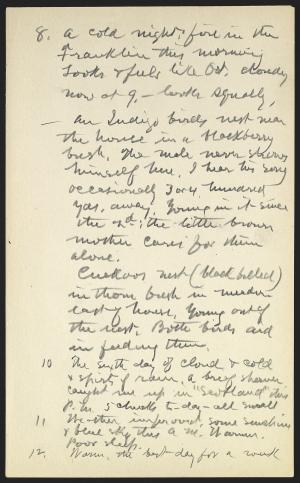 8. A cold night; fire in the
Franklin this morning
Looks & feels like Oct, cloudy
now at 9, - looks squally,
— An Indigo birds nest near
the house in a blackberry
bush, The male never shows
himself here, I hear his song
occasionally 3 or 4 hundred
yds. away. Young in it since
the 2d; the little brown
mother cares for them
alone.
Cuckoos nest (black billed)
in thorn bush in meadow
east of house, Young out of
the nest. Both birds aid
in feeding them.
10 The sixth day of cloud & cold
& spirts of rain, a brief shower
caught me up in "Scotland" this
P.M. 5 chucks to-day - all small
11 Weather improved, some sunshine
& blue sky this a m. Warmer.
Poor sleep.
12. Warm, the best day for a week